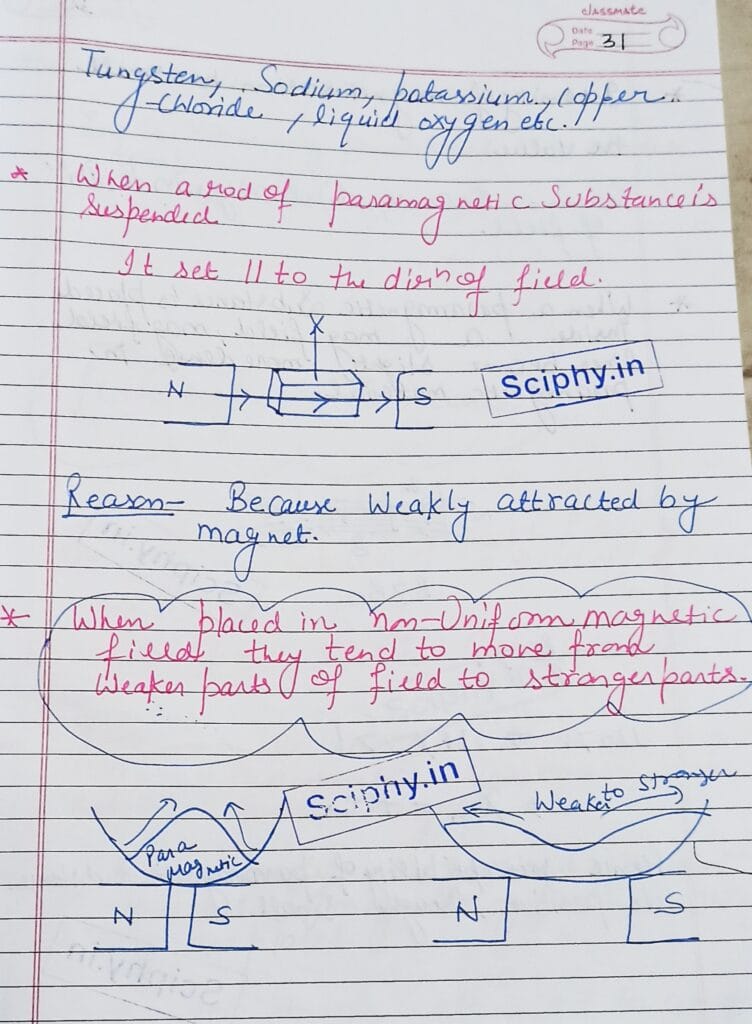 classmate
Date
Page 31
Tungsten, Sodium, potassium, Copper
Chloride, liquid oxygen etc.
* When a rod of paramagnetic Substance is
Suspended
It set 11 to the dirⁿ of field.
X
N S
Sciphy.in
Reason- Because Weakly attracted by
magnet.
* When placed in non-Uniform magnetic
field they tend to move from
Weaker parts of field to stronger parts.
Sciphy.in
Weaker to Stronger
Para
Magnetic
N S N S